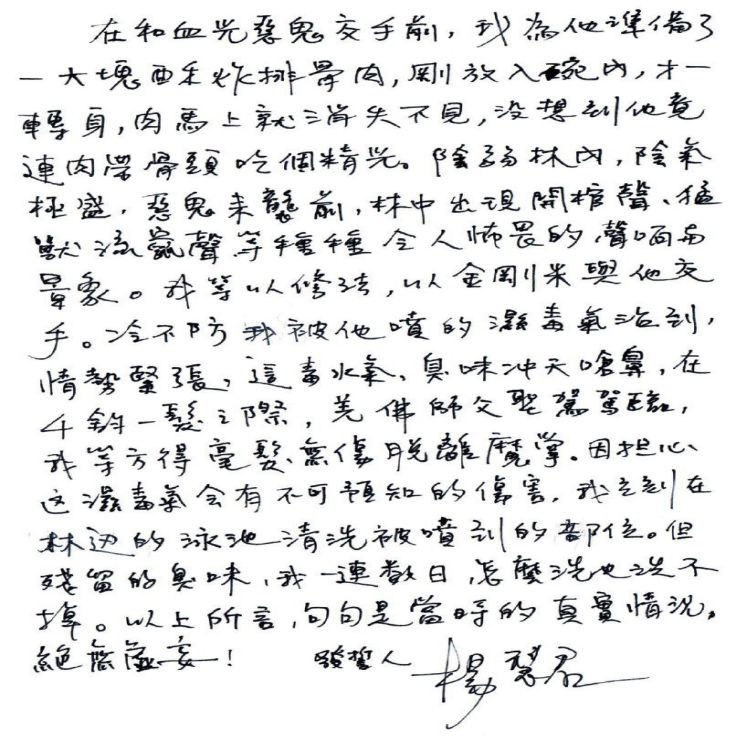 在和血光惡鬼交手前，我為他準備了
一大塊酥炸排骨肉，剛放入碗內，才一
轉身，肉馬上就消失不見，没想到他竟
連肉帶骨頭吃個精光。陰弱林內，陰氣
極盛，惡鬼来襲前，林中出現開棺聲、猛
獸流聲等種種令人怖畏的聲响与
景象。我等以修法，以金剛米與他交
手。冷不防我被他噴的濕毒氣沾到，
情勢緊張，這毒水氣、臭味冲天嗆鼻，在
千鈞一髮之際，羌佛師父聖駕駕臨，
我等方得毫髮無傷脱離魔掌。因担心
这濕毒氣会有不可預知的傷害，我立刻在
林边的泳池清洗被噴到的部位。但
殘留的臭味，我一連數日，怎麼洗也洗不
掉。以上所言，句句是當時的真實情况，
絕無虛妄！ 發誓人 楊慧君